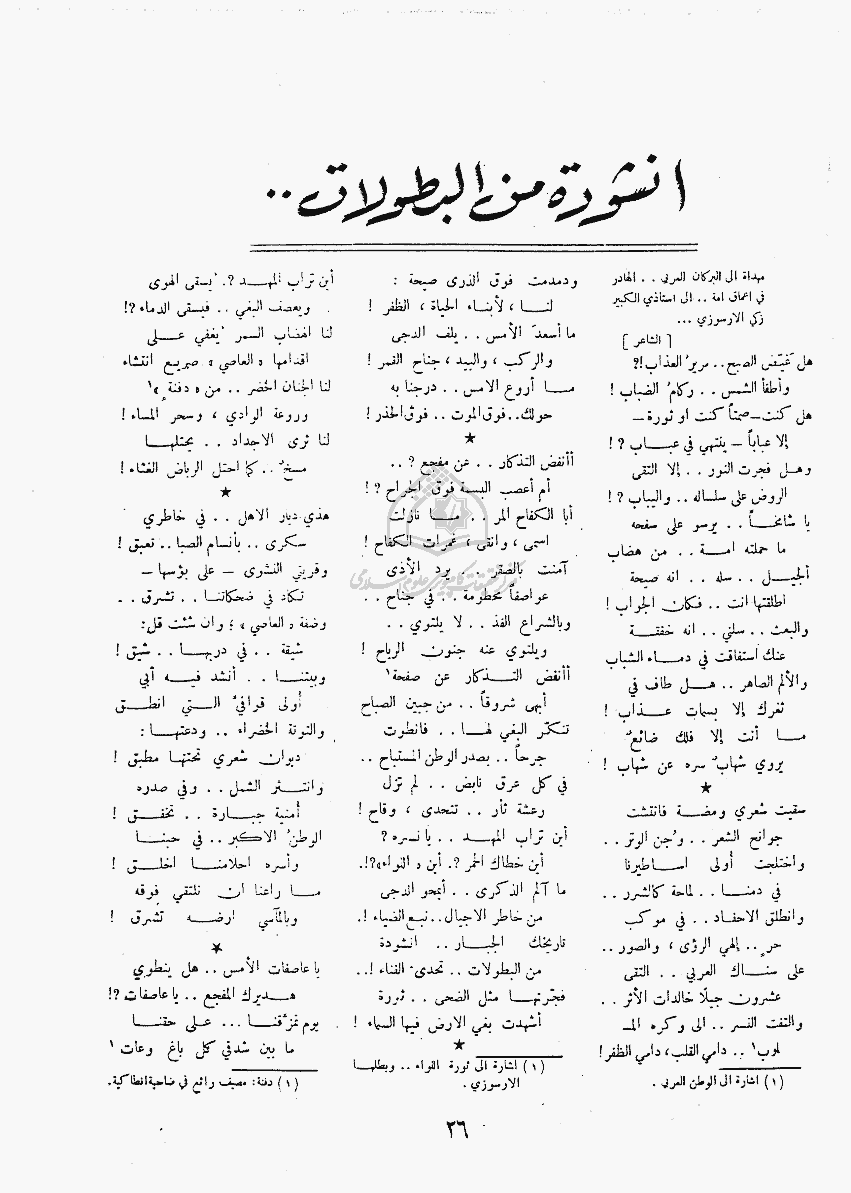 انشودة من البطولات ..
مهداة الى البركان العربي . . الهادر
في اعماق امة .. الى استاذي الكبير
زكي الارسوزي ...
[ الشاعر ]
هل غيّض الصبح .. مريرُ العذاب !?
وأطفأ الشمس .. ركامُ الضباب !
هل كنت – صمتاً كنت او ثورة –
إلا عباباً – ينتهي في عباب ?!
وهل فجرت النور .. إلا التقى
الروض على سلساله .. واليباب ?!
يا شامخاً .. يرسو على سفحه
ما حملته امة .. من هضاب
الجيل .. سله .. انه صيحة
اطلقتها انت .. فكان الجواب !
والبعث .. سلني .. انه خفقة
عنك استفاقت في دماء الشباب
والألم الصاهر .. هل طاف في
ثغرك إلا بسمات عذاب !
ما أنت إلا فلك ضائعٌ
يروي شهابٌ سره عن شهاب !
★
سقيت شعري ومضة فانتشت
جوانح الشعر .. وجن الوتر ..
واختلجت أولى اساطيرنا
في دمنا .. لماحة كالشرر ..
وانطلق الاحفاد .. في موكب
حرٍ .. إلهي الرؤى ، والصور ..
على سناك العربي .. التقى
عشرون جيلًا خالدات الأثر ..
والتفت النسر .. الى وكره المـ
لوب¹ .. دامي القلب ، دامي الظفر !
(١) اشارة الى الوطن العربي .
ودمدمت فوق الذرى صيحة :
لنا ، لأبناء الحياة ، الظفر !
ما أسعدَ الأمس .. يلف الدجى
والركب ، والبيد ، جناح القمر !
ما أروع الامس .. درجنا به
حولك .. فوق الموت .. فوق الحذر !
★
أأنفض التذكار .. عن مفجع ? ..
أم أعصب البسمة فوق الجراح ? !
أبا الكفاح المر .. ما نازلت
اسمى ، وانقى ، غمرات الكفاح !
آمنت بالصقر .. يرد الأذى
عواصفاً محطومة .. في جناح ..
وبالشراع الفذ .. لا يلتوي ..
ويلتوي عنه جنون الرياح !
أأنفض التذكار عن صفحة¹
أبهى شروقاً .. من جبين الصباح
تنكّر البغي لها .. فانطوت
جرحاً .. بصدر الوطن المستباح ..
في كل عرق نابض .. لم تزل
رعشة ثأر .. تتحدى ، وقاح !
أين تراب المهد .. يا نسره ?
أين خطاك الحمر ?. أين « اللواء » ?!.
ما آلم الذكرى .. أيمحو الدجى
من خاطر الاجيال .. نبع الضياء !.
تاريخك الجبار .. انشودة
من البطولات .. تحدى الفناء !..
فجرتها مثل الضحى .. ثورة
أشهدت بغي الارض فيها السماء !
★
(١) اشارة الى ثورة اللواء .. وبطلها
الارسوزي .
أين تراب المهد ?. يُسقى الهوى
ويعصف البغي .. فيسقى الدماء ?!
لنا الهضاب السمر يُغفي على
اقدامها « العاصي » صريع انتشاء
لنا الجنان الخضر .. من « دفنةٍ »¹
وروعة الوادي ، وسحر المساء !
لنا ثرى الاجداد .. يحتلها
مسخٌ .. كما احتل الرياض الغثاء !
★
هذي ديار الاهل .. في خاطري
سكرى .. بأنسام الصبا .. تعبق !
وقريتي النشوى – على بؤسها –
تكاد في ضحكاتنا .. تشرق ..
وضفة « العاصي » ؛ وان شئت قل :
شيقة .. في دربها .. شيق !
وبيتنا .. أنشد فيه أبي
أولى قوافيّ التي انطق
والتوتة الخضراء .. ودعتها :
ديوان شعري تحتها مطبق !
وانتثر الشمل .. وفي صدره
أمنية جبارة .. تخفق !
الوطنُ الاكبر .. في حبنا
وأسره احلامنا اخلق !
ما راعنا ان نلتقي فوقه
وبالمآسي ارضه تشرق !
★
يا عاصفات الأمس .. هل ينطوي
هديرك المفجع .. يا عاصفات ?!
يوم تمزّقنا ... على حقنا
ما بين شدقي كل باغ وعات !
(١) دفنة : مصيف رائع في ضاحية انطاكية .
٢٦